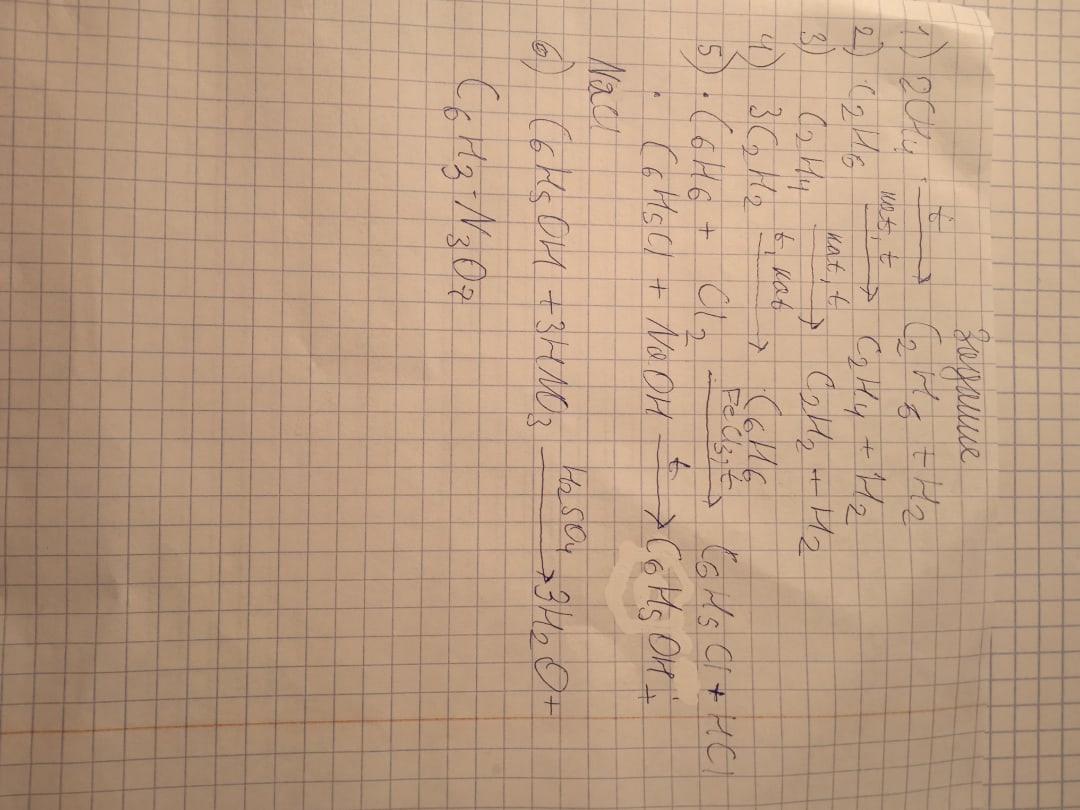 Задание
1) 2CH₄ →(t) C₂H₆ + H₂
2) C₂H₆ →(кат, t) C₂H₄ + H₂
3) C₂H₄ →(кат, t) C₂H₂ + H₂
4) 3C₂H₂ →(t, кат) C₆H₆
5) · C₆H₆ + Cl₂ →(FeCl₃, t) C₆H₅Cl + HCl
· C₆H₅Cl + NaOH →(t) C₆H₅OH +
NaCl
6) C₆H₅OH + 3HNO₃ →(H₂SO₄) 3H₂O +
C₆H₃N₃O₇